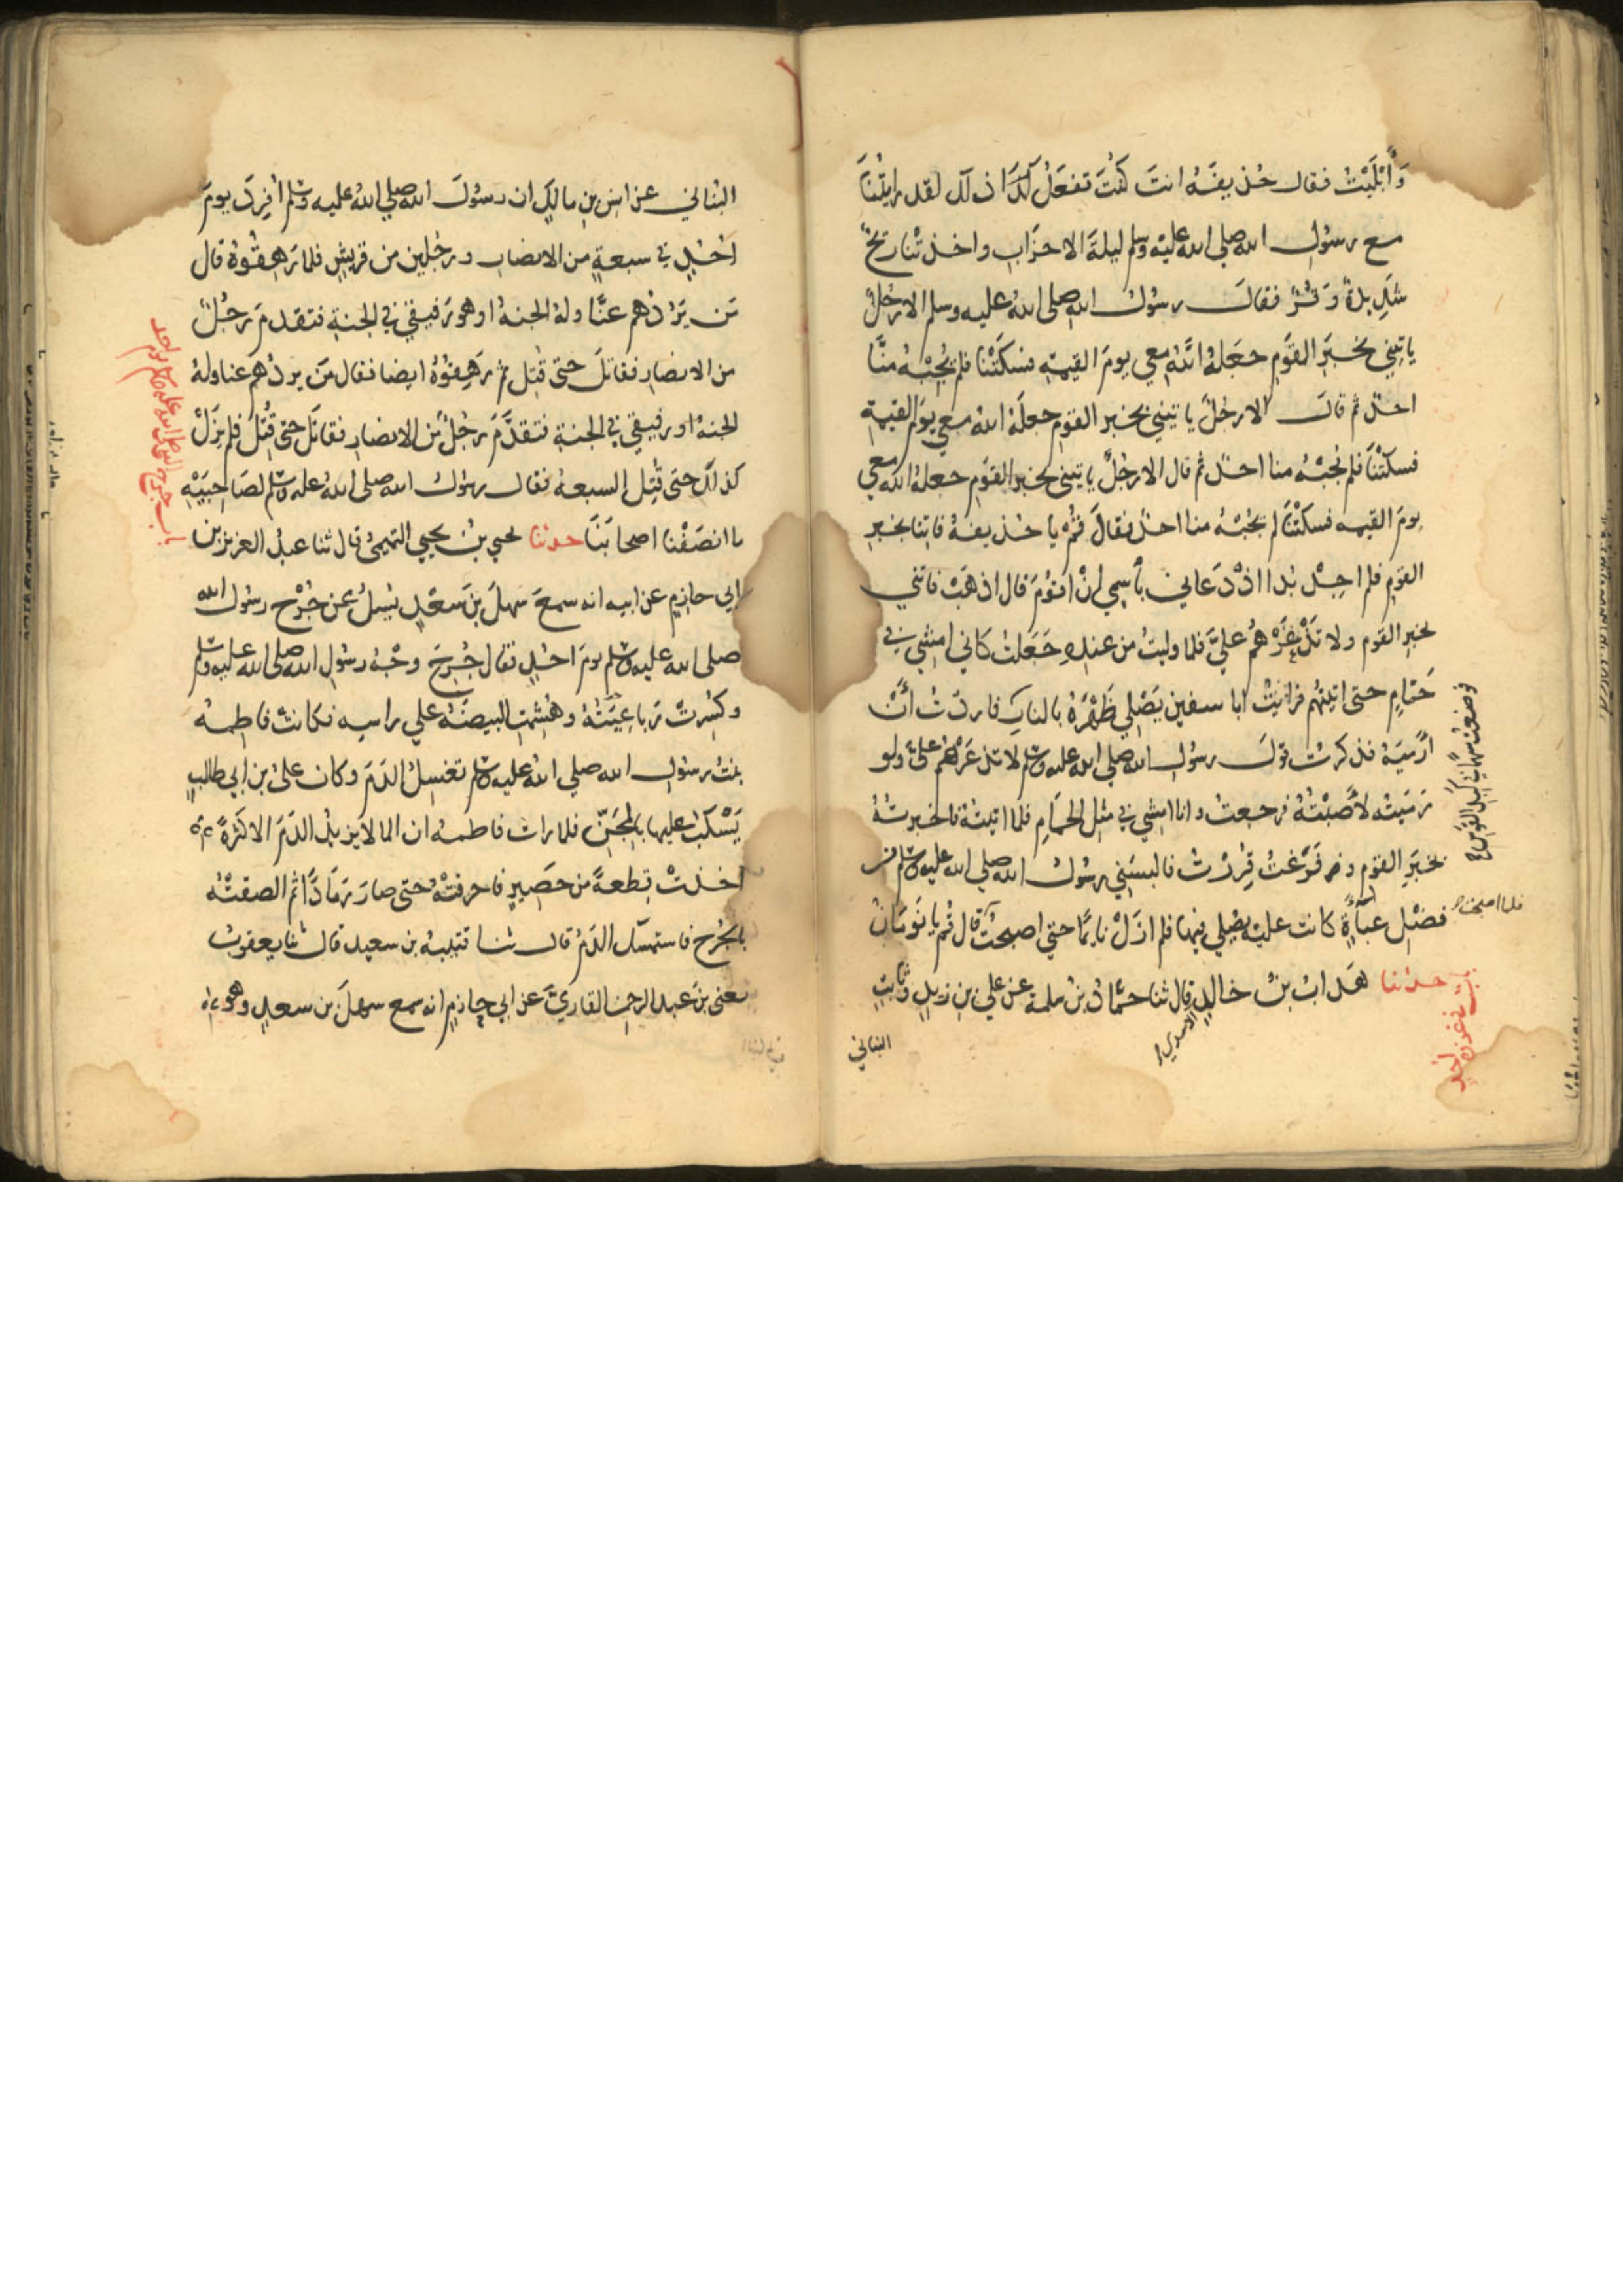 وَأَبْلَيْتُ فقال حُذيفَهُ انتَ كُنتَ تفعَلُ ذاك لقد رايتُنَا
مع رسُولِ الله صلى الله عليه وسلم ليلةَ الاحزَابِ واخذتْنا ريحٌ
شَدِيدةٌ وَقُرٌّ فقالَ رسُولُ الله صلى الله عليه وسلم الا رجُلٌ
ياتِيني بخبَرِ القَومِ جعَلهُ اللهُ معي يومَ القيمةِ فسكَتْنا فلم يُجِبْهُ منَّا
احدٌ ثم قالَ الا رجُلٌ ياتيني بخبرِ القومِ جعلَهُ اللهُ معي يومَ القيمةِ
فسكتْنَا فلم يُجبْهُ منا احدٌ ثم قال الا رجُلٌ ياتيني بخبرِ القومِ جعلهُ الله معي
يومَ القيمه فسكتْنَا لم يجبْهُ منا احدٌ فقالَ قُمْ يا حُذيفهُ فاتنا بخبرِ
القومِ فلم اجِدْ بُدا اذْ دَعاني بأسمي انْ اقوُمَ قال اذهَبْ فاتني
بخبرِ القوم ولا تَذْعَرْهُم عليَّ فلما وليتُ من عندِهِ جَعَلتُ كاني امشي في
حَمَّامٍ حتى اتيتهُم فرايتُ ابا سفين يَصْلِي ظَهْرَهُ بالنارِ
فوضعتُ سهمًا في كبِدِ القوسِ
فاردتُ أنْ
ارْميَهُ فذكرتُ قولَ رسُولِ الله صلى الله عليه وسلم لا تذعَرْهُم عليَّ ولو
رَميتُه لأصَبْتُهُ فرجعتُ وانا امشي في مثلِ الحمَّامِ فلما اتيتُهُ فاخبرتُهُ
بخبَرِ القومِ وفرَغتُ قُرِرْتُ فالبسَني رسُولُ الله صلى الله عليه وسلم من
فضْلِ عباءَةٍ كانت عليه يُصَلي فيها فلم ازَلْ نايمًا حتى اصبحتُ قال قُم يا نَومَانُ
فلما اصبحتُ
باب في غزوة احد
حدثنا هَدابُ بنُ خالدٍ
الازدي
قال ثنا حمَّادُ بنُ سلمة عن علي بنِ زيدٍ وثابتٍ
البناني
البُناني عن انسِ بنِ مالكٍ ان رسُولَ الله صلى اللهُ عليه وسلم أُفرِدَ يومَ
اُحُدٍ في سبعةٍ من الانصارِ ورجُلين من قريشٍ فلما رَهِقُوهُ قال
مَن يَرُدُّهم عنَّا ولهُ الجنهُ او هو رَفيقي في الجنةِ فتقدمَ رجُلٌ
من الانصارِ فقاتلَ حتى قُتِل ثم رَهِقُوهُ ايضا فقال مَن يردُّهُم عنا ولهُ
الجنهُ او رفيقي في الجنةِ فتقدَّمَ رجُلٌ من الانصارِ فقاتَلَ حتى قُتِلَ فلم يزَلْ
كذلك حتى قُتِل السبعهُ فقال رسُولُ الله صلى الله عليه وسلم لصَاحِبَيْهِ
ما انصَفْنا اصحابَنَا حدثنا يحيي بنُ يحيي التميميُّ قال ثنا عبدُ العزيز بن
باب جرح النبي صلى الله عليه وسلم يوم احد
ابي حازمٍ عن ابيه انه سمعَ سهلَ بنَ سَعْدٍ يُسلُ عن جُرْحِ رسُول الله
صلى الله عليه وسلم يومَ احُدٍ فقال جُرِحَ وجْهُ رسُولِ الله صلى الله عليه وسلم
وكُسِرَتْ رَباعِيَتُهُ وهُشِمتِ البيضَهُ علي راسِه فكانتْ فاطمهُ
بنتُ رسُولِ الله صلى اللهُ عليه وسلم تغسِلُ الدَمَ وكان عليُّ بن ابي طالبٍ
يَسْكُبُ عليها بالمِجَنِّ فلما رات فاطمهُ ان الما لا يزيدُ الدَمَ الا كثرَةً
اخذتْ قِطعةً من حَصيرٍ فاحرقتْهُ حتى صارَ رَمَادًا ثم الصقتْهُ
بالجُرْحِ فاستمسك الدَمُ قال ثنا قتيبهُ بن سعيد قال ثنا يعقوبُ
يعني بنَ عبد الرحمن القارِيَّ عن ابي حازمٍ انه سمع سهلَ بن سعدٍ وهو